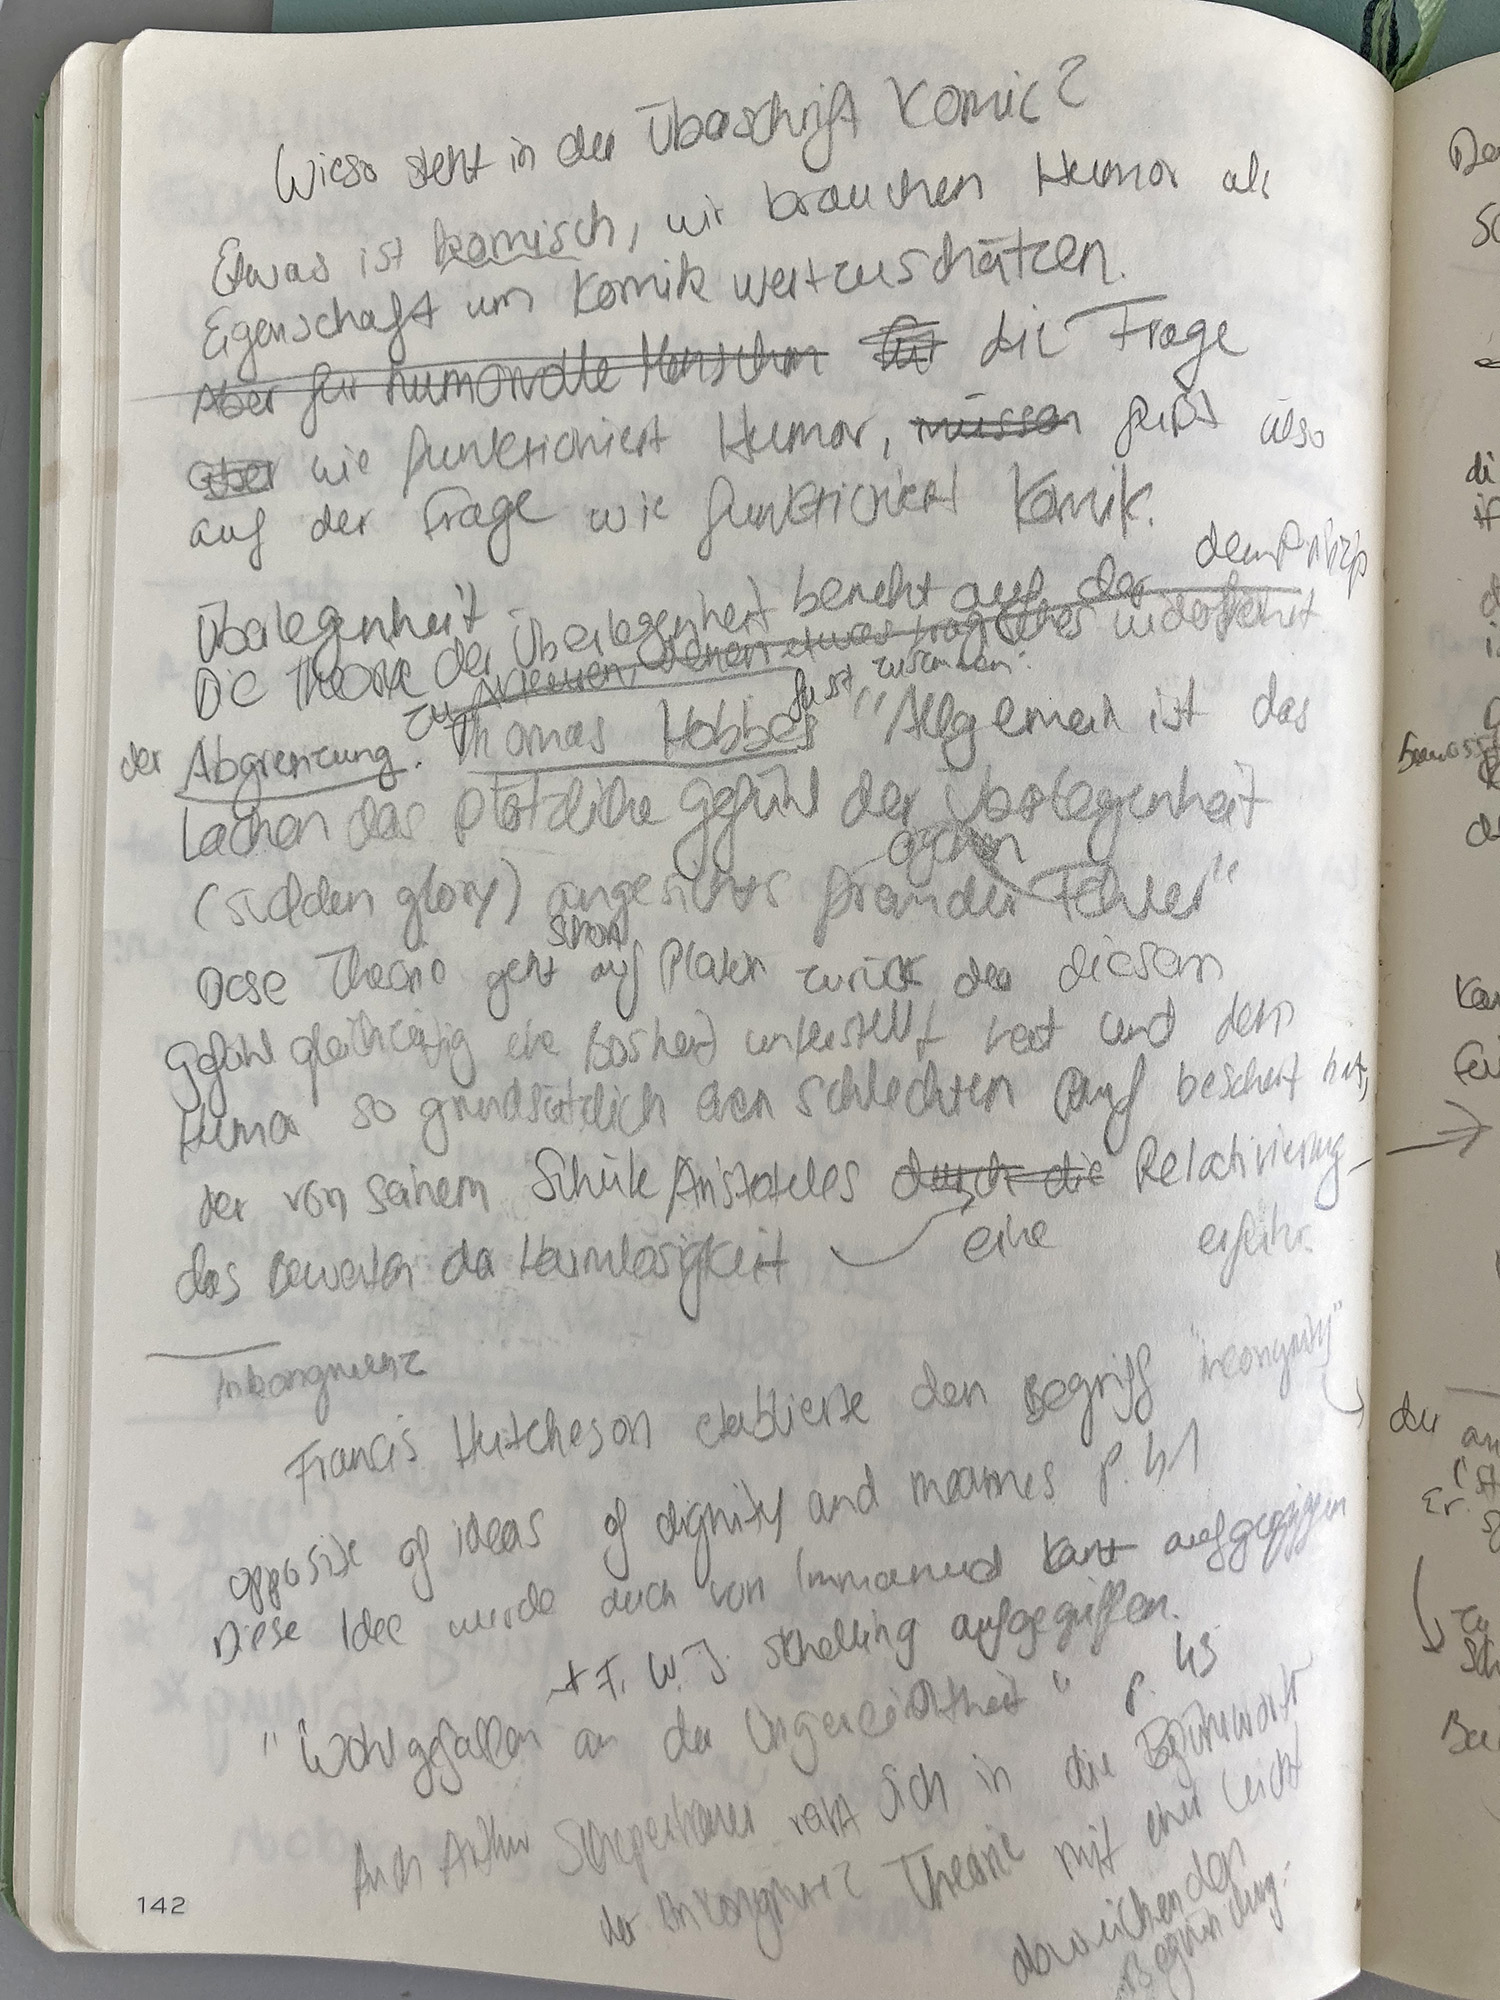 Wieso steht in der Überschrift Komic?
Etwas ist komisch, wir brauchen Humor als
Eigenschaft um Komik wertzuschätzen.
Aber für humorvolle Menschen für die Frage
aber wie funktioniert Humor, müssen fußt also
auf der Frage wie funktioniert Komik.
Überlegenheit
dem Prinzip
Die Theorie der Überlegenheit beruht auf der
zu denen etwas tragisches widerfährt
der Abgrenzung. Thomas Hobbes fasst zusammen: "Allgemein ist das
Lachen das plötzliche Gefühl der Überlegenheit
(sudden glory) angesichts fremder Fehler"
Diese Theorie geht schon auf Platon zurück der diesem
Gefühl gleichzeitig eine Bosheit unterstellt hat und dem
Humor so grundsätzlich einen schlechten Ruf beschert hat,
der von seinem Schüler Aristoteles durch die Relativierung
das Bewerten der Harmlosigkeit eine erfuhr.
Inkongruenz
Francis Hutcheson etablierte den Begriff "incongruity"
opposite of ideas of dignity and meannes p. 41
Diese Idee wurde auch von Immanuel Kant aufgegriffen
+ F. W. J. Schelling aufgegriffen.
"Wohlgefallen an der Ungereimtheit" p. 45
Auch Arthur Schopenhauer reiht sich in die Befürworter
der Inkongruenz Theorie mit einer leicht
abweichenden
Begründung.
142